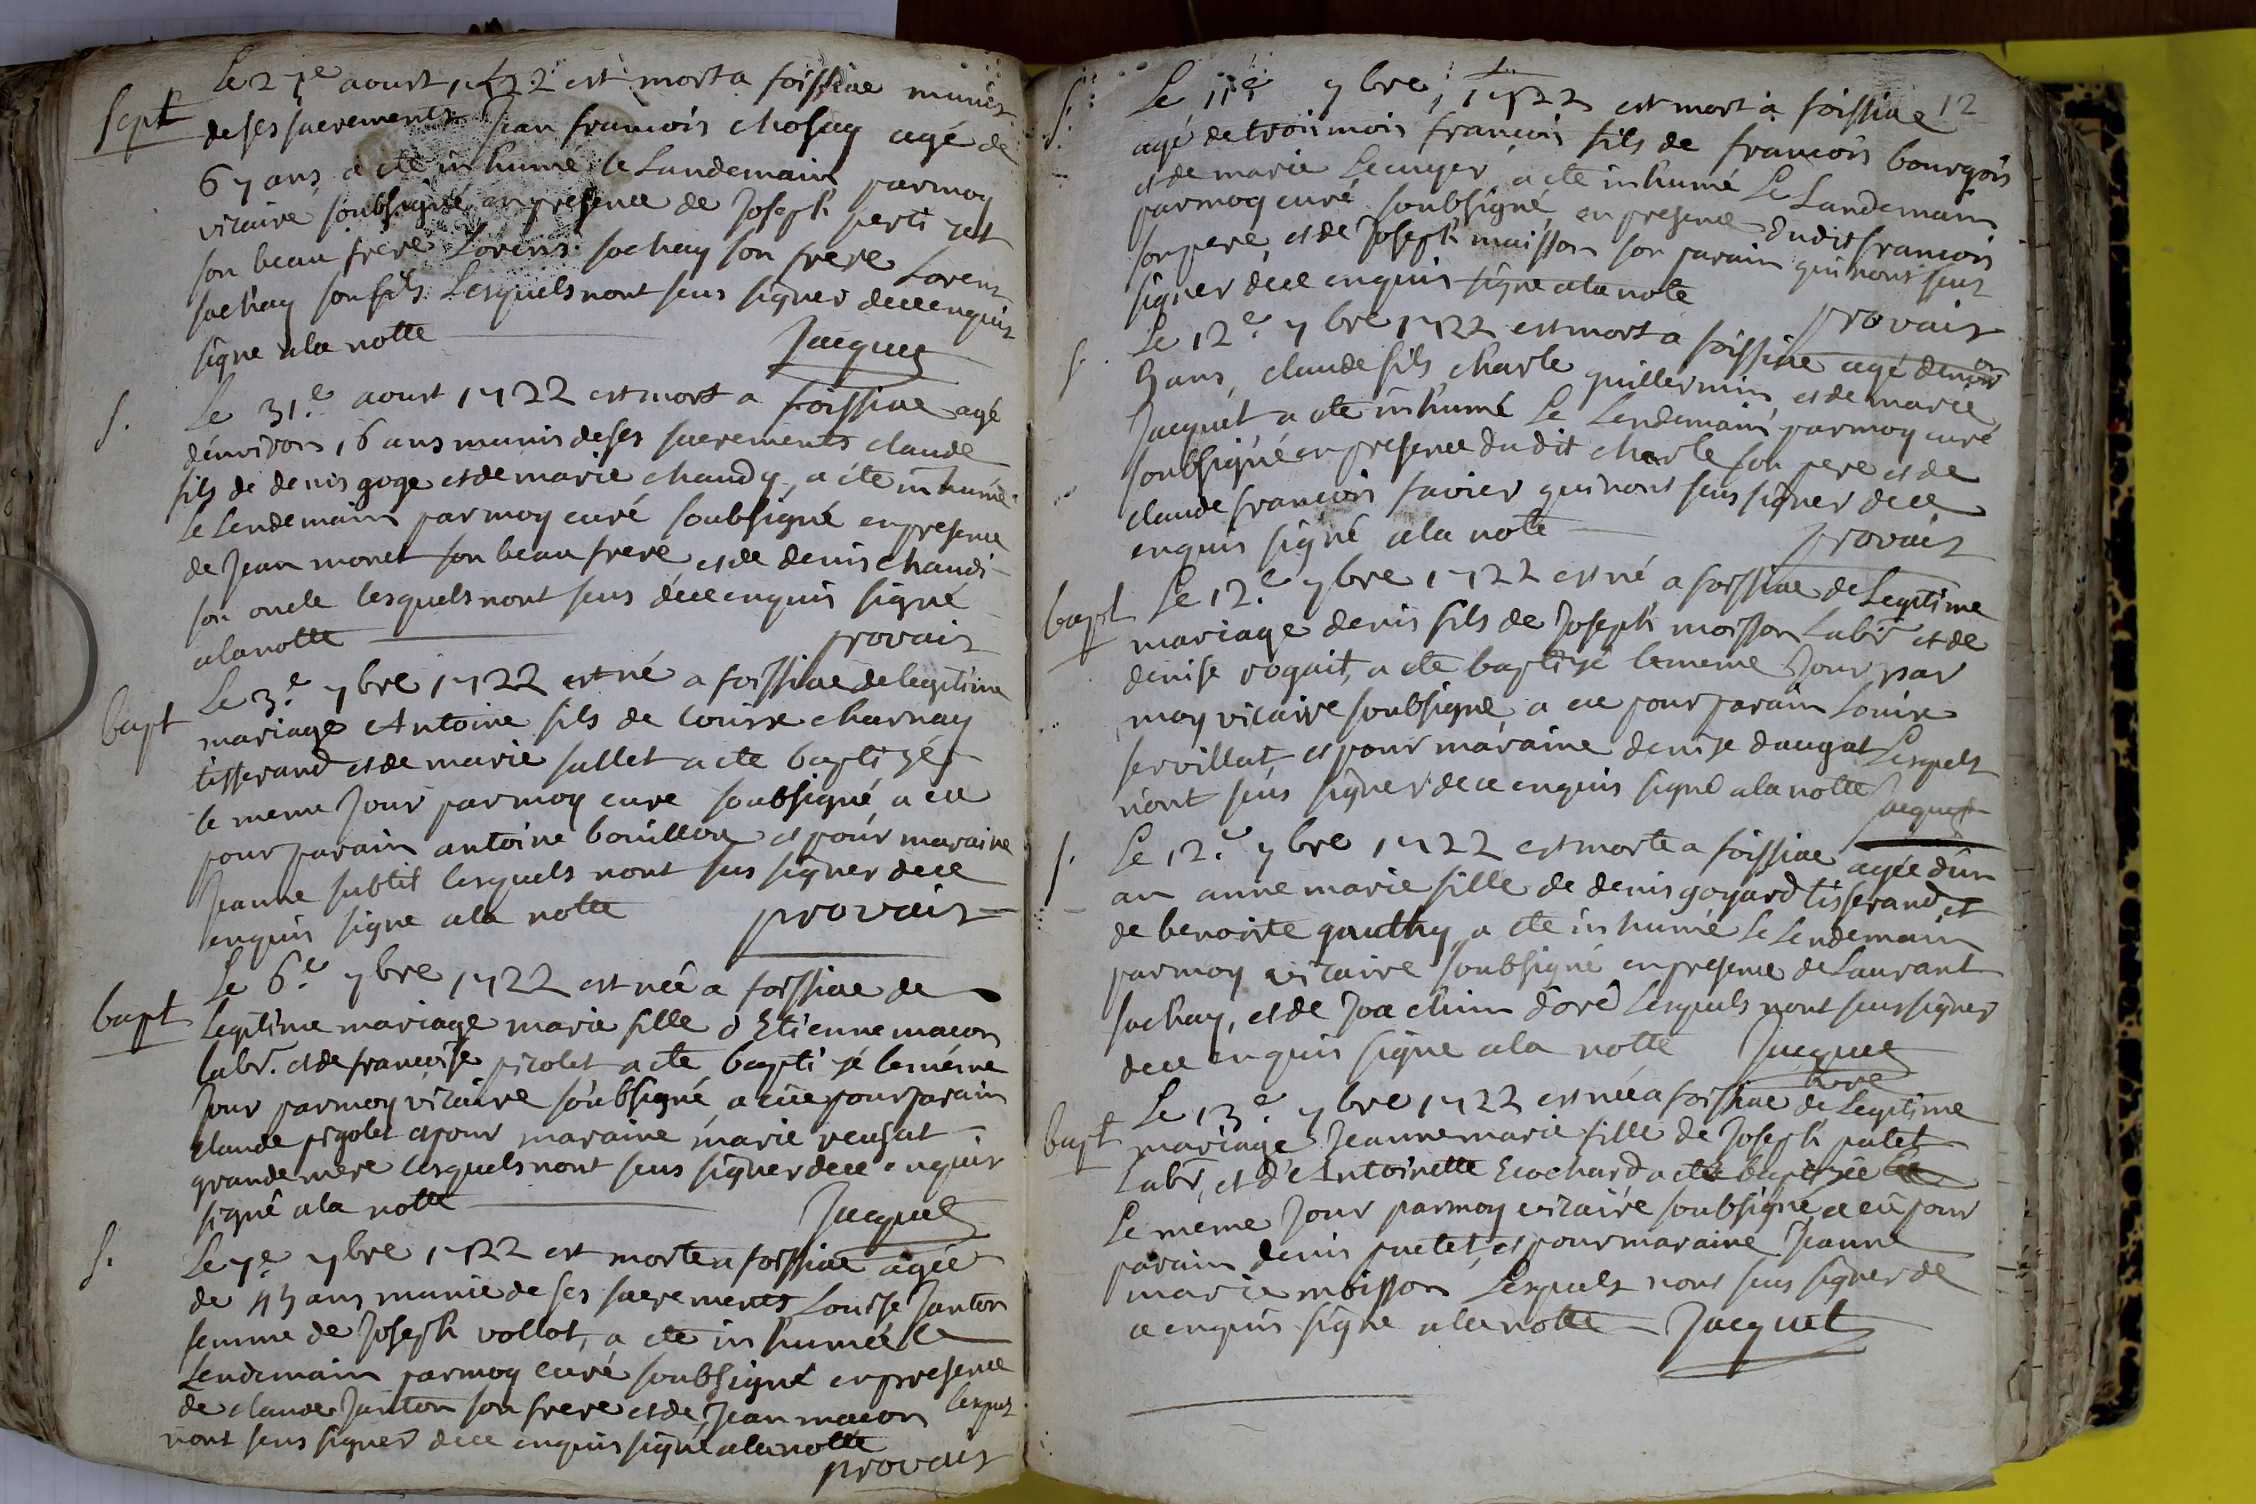 Le 27e aoust 1722 est mort a foissiae munis
sept
de ses sacrements Jean francois chosay agé de
67 ans a eté inhumé le Landemain parmoy
vicaire soubsigné en presence de Joseph perti jet
son beau frere Lorens sochay son frere Lorens
sochay son fils Lesquels nont seus signer dece enquis
signe ala notte
Jacquet
S.
Le 31e aoust 1722 est mort a foissiae agé
denviron 16 ans munis de ses sacrements claude
fils de denis goge et de marie chaudy, a eté inhumé
le Lendemain parmoy curé soubsigné en presence
de Jean monet son beau frere et de denis chaudi
son oncle lesquels nont seus dece enquis signé
ala notte
provais
bapt
Le 3e 7bre 1722 est né a foissiae de legitime
mariage Antoine fils de Louise charnay
tisserand et de marie sallet a eté baptizé
le meme Jour parmoy cure soubsigné a eu
pour parain antoine bouillou et pour maraine
Jeanne subtil lesquels nont sus signer dece
enquis signe ala notte provais
bapt
Le 6e 7bre 1722 est née a foissiae de
legitime mariage marie fille d'Etienne macon
labr. et de francoise picolet a eté baptizé le méme
Jour parmoy vicaire soubsigné, a eüe pour parain
claude pigolet et pour maraine marie
grande mere lesquels nont seus signer dece enquis
signé ala notte
Jacquet
S.
Le 7e 7bre 1722 est morte a foissiae agée
de 45 ans munie de ses sacrements Louise Janton
femme de Joseph vollot, a eté inhumée le
Lendemain parmoy curé soubsigné en presence
de claude Janton son frere et de Jean macon lesquels
nont seus signer dece enquis signé ala notte
provais
12
S.
Le 11e 7bre 1722 est mort a foissiae
agé de trois mois francois fils de francois bourgois
et de marie Lecuyer a eté inhumé Le Landemain
parmoy curé soubsigné, en presence dudit francois
son pere, et de Joseph maisson son parain qui nont seus
signer dece enquis signe ala notte
provais
S.
Le 12e 7bre 1722 est mort a foissiae agé denviron
5 ans, claude fils charle guillermin et de marie
Jacquet a eté inhumé Le Lendemain parmoy curé
soubsigné en presence dudit charle son pere et de
claude francois favier qui nont seus signer dece
enquis signé ala notte
provais
bapt
Le 12e 7bre 1722 est né a foissiae de Legitime
mariage denis fils de Joseph moisson Labr et de
denise rogait, a eté baptizé le meme Jour par
moy vicaire soubsigné, a eu pour parain Louis
servillat, et pour maraine denise daugat Lesquels
nont seus signer dece enquis signé ala notte
Jacquet
S.
Le 12e 7bre 1722 est morte a foissiae agée d'un
an anne marie fille de denis goyard tisserand, et
de benoite gauthy, a eté inhumé Le Lendemain
parmoy vicaire soubsigné en presence de Laurant
sochay, et de Joachim doré Lesquels nont seus signer
dece enquis signe ala notte Jacquet
bapt
Le 13e 7bre 1722 est née a foissiae de Legitime
mariage Jeanne marie fille de Joseph patet
Labr, et d'Antoinette Ecochard a eté baptizée
Le méme Jour parmoy vicaire soubsigné, a eü pour
parain denis puetet, et pour maraine Jeanne
marie moisson Lesquels nont seus signer de
ce enquis signe ala notte Jacquet